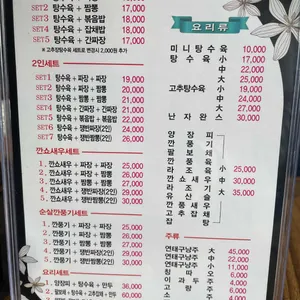 SET2 탕수육 + 짬뽕 17,000
SET3 탕수육 + 볶음밥 18,000
SET4 탕수육 + 잡채밥 17,000
SET5 탕수육 + 간짜장
※ 고추탕수육 세트로 변경시 2,000원 추가
2인세트
SET1 탕수육 + 짜장 + 짜장 19,000
SET2 탕수육 + 짜장 + 짬뽕 20,000
SET3 탕수육 + 짬뽕 + 짬뽕 21,000
SET4 탕수육 + 간짜장 + 간짜장 21,000
SET5 탕수육 + 볶음밥 + 볶음밥 22,000
SET6 탕수육 + 잡채밥 + 잡채밥
SET7 탕수육 + 쟁반짜장(2인) 24,000
탕수육 + 쟁반짬뽕(2인) 26,000
깐쇼새우세트
1. 깐쇼새우 + 짜장 + 짜장 25,000
2. 깐쇼새우 + 짜장 + 짬뽕 26,000
3. 깐쇼새우 + 짬뽕 + 짬뽕 27,000
4. 깐쇼새우 + 쟁반짜장(2인) 30,000
5. 깐쇼새우 + 쟁반짬뽕(2인) 31,000
순살깐풍기세트
1. 깐풍기 + 짜장 + 짜장 25,000
2. 깐풍기 + 짜장 + 짬뽕 26,000
3. 깐풍기 + 짬뽕 + 짬뽕 27,000
4. 깐풍기 + 쟁반짜장(2인) 30,000
5. 깐풍기 + 쟁반짬뽕(2인) 31,000
요리세트
1. 양장피 + 탕수육 + 만두
2. 팔보채 + 탕수육 + 고추잡채 + 만두 60,000
요리류
미니탕수육 10,000
탕수육 小 17,000
中 22,000
大 25,000
고추탕수육 小 19,000
中 24,000
大 27,000
난자완스 30,000
양장피
깐풍기
팔보채
깐풍육
라조육 小 25,000
깐쇼새우 中 30,000
라조기 大 35,000
유산슬
깐풍새우
고추잡채
주류
연태구냥주 大 45,000
연태구냥주 中
연태구냥주 小